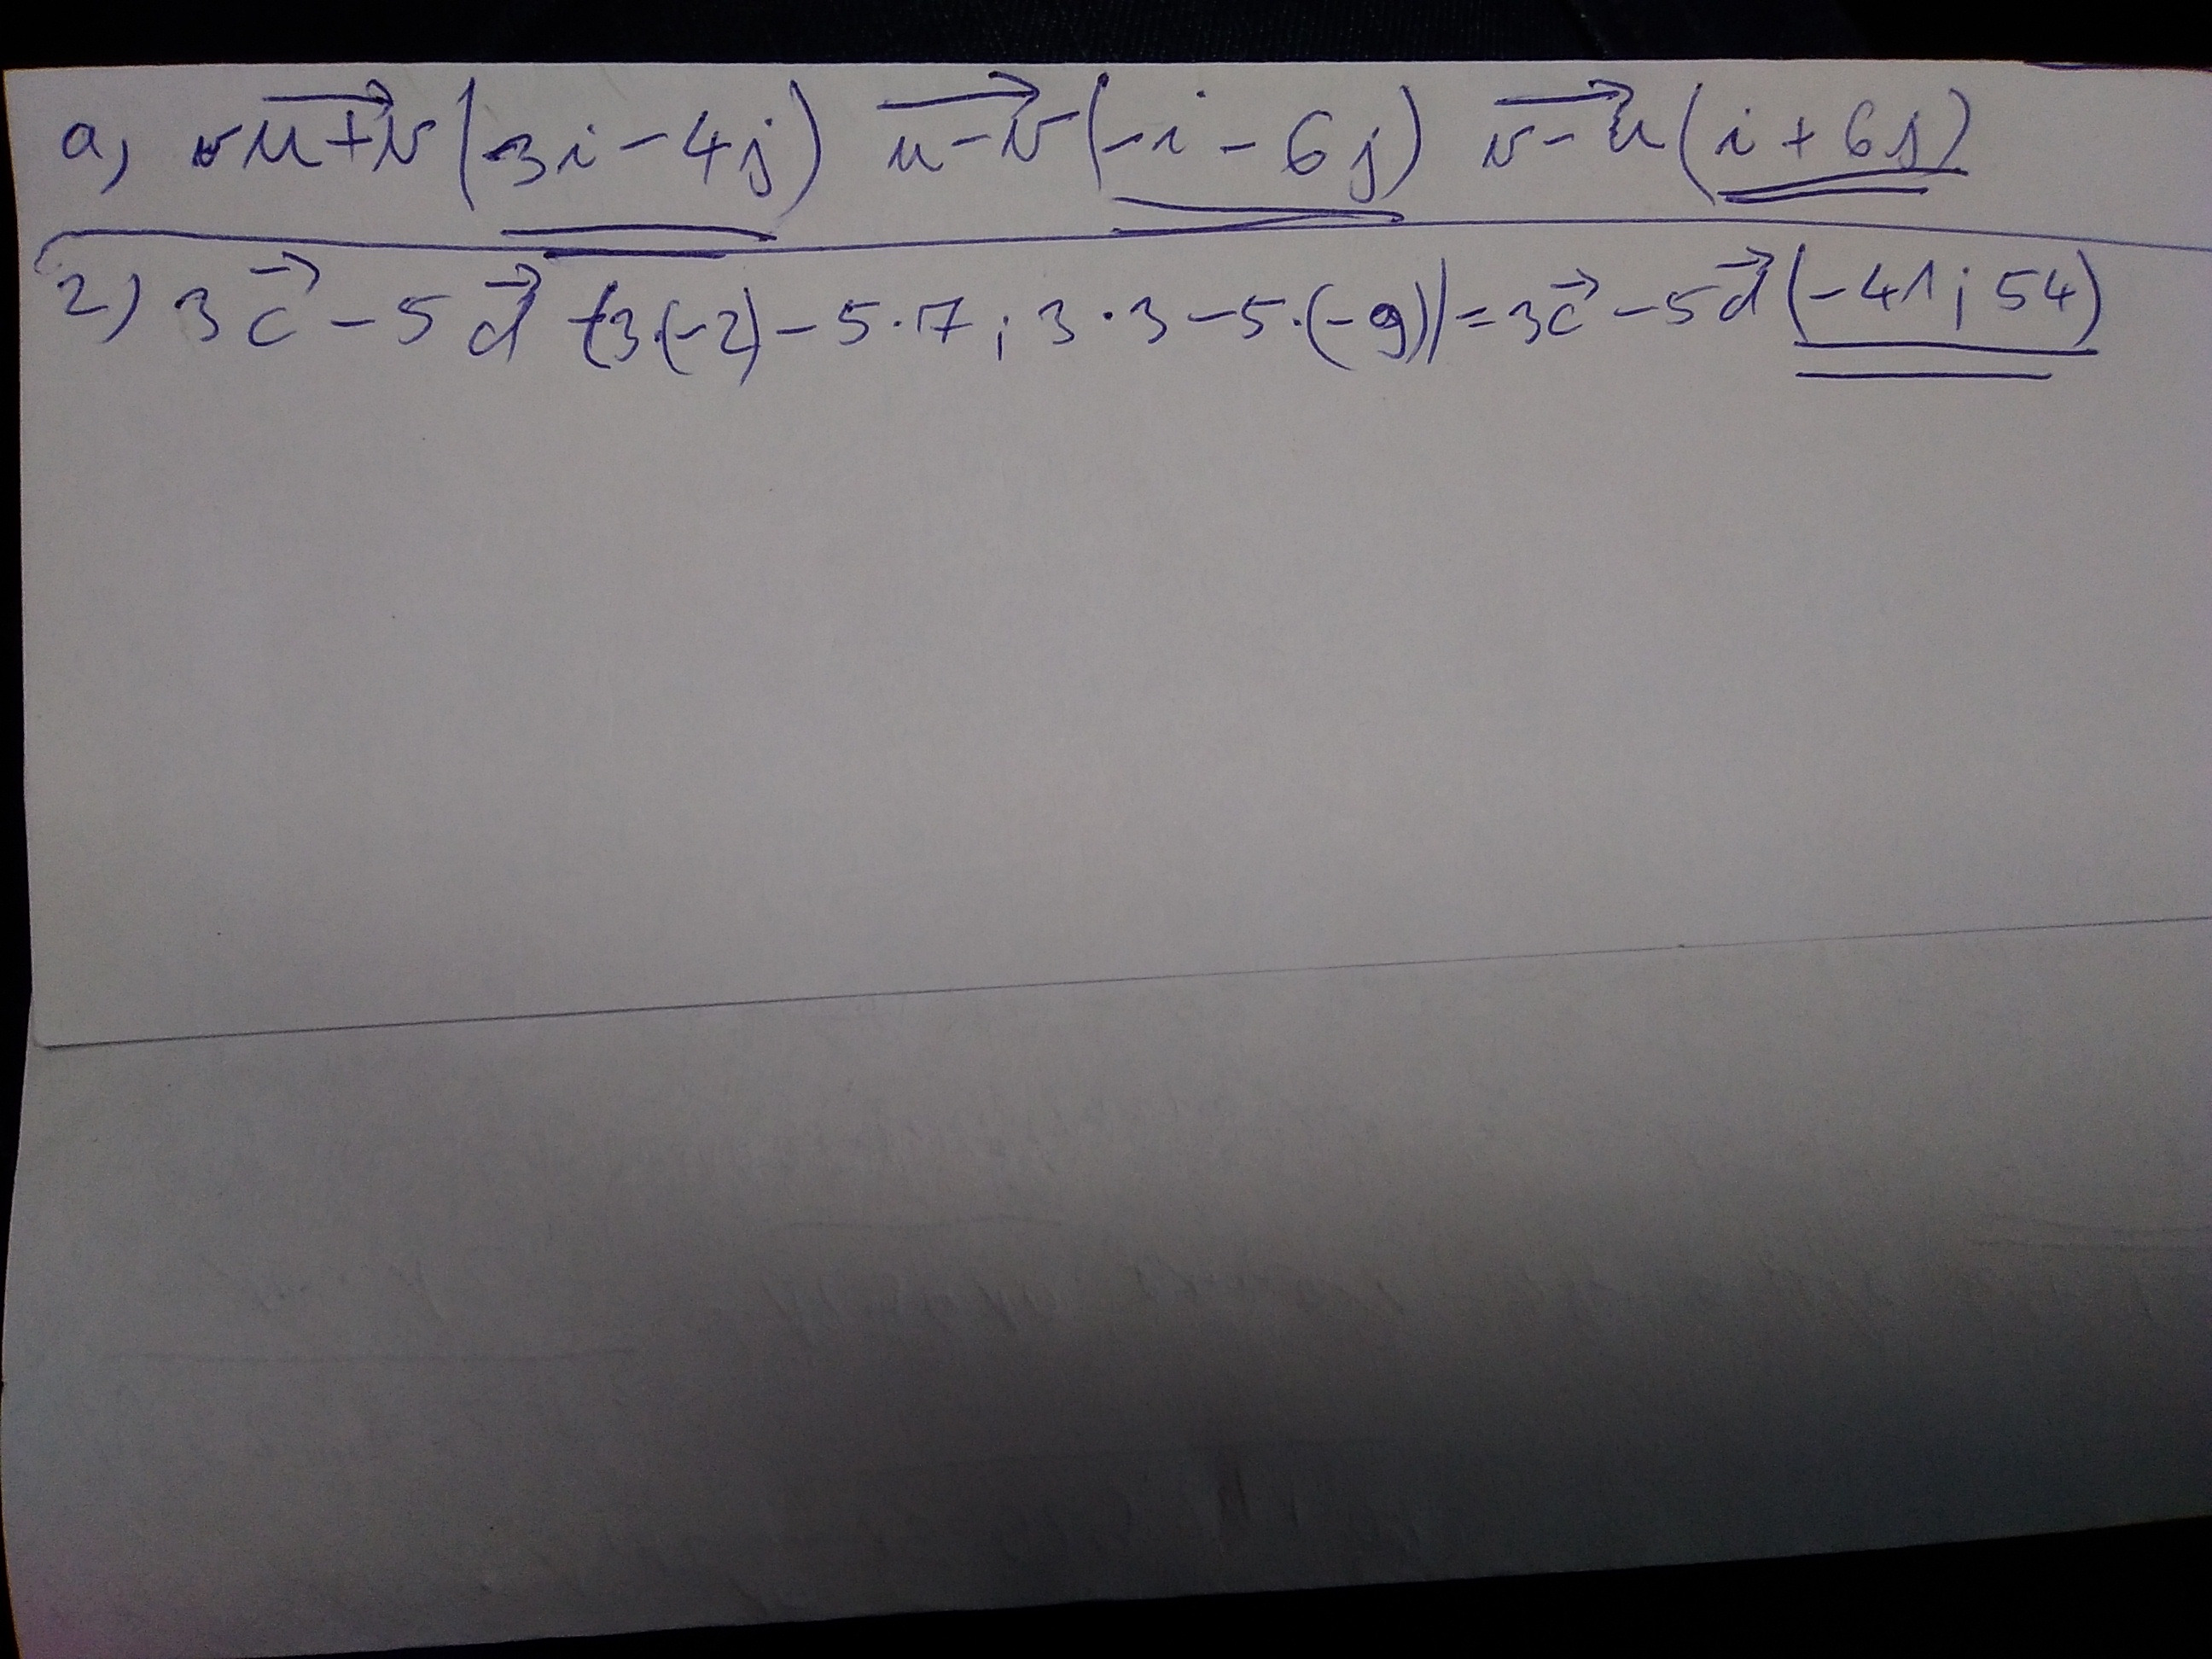 a, u+v (3i-4j) u-v (-i-6j) v-u (i+6j)
2) 3c-5d (3·(-2)-5·7; 3·3-5·(-9))=3c-5d (-41; 54)